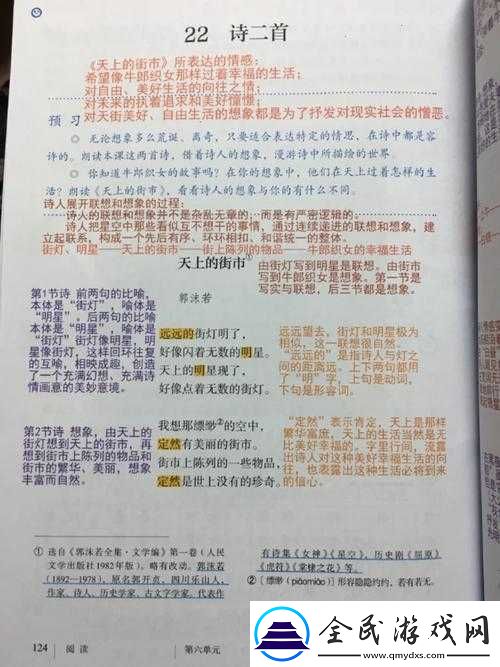 22 诗二首
《天上的街市》所表达的情感：
希望像牛郎织女那样过着幸福的生活；
对自由、美好生活的向往之情；
对未来的执着追求和美好憧憬；
预 习 对天街美好、自由生活的想象都是为了抒发对现实社会的憎恶。
◎ 无论想象多么荒诞、离奇，只要适合表达特定的情思，在诗中都是容
许的。朗读本课这两首诗，借着诗人的想象，漫游诗中所描绘的世界。
◎ 你知道牛郎织女的故事吗？在你的想象中，他们在天上过着怎样的生
活？朗读《天上的街市》，看看诗人的想象与你的有什么不同。
诗人展开联想和想象的过程：
诗人的联想和想象并不是杂乱无章的，而是有严密逻辑的。
诗人把星空中那些看似互不相干的事情，通过连续递进的联想和想象，建
立起联系，构成一个先后有序、环环相扣、和谐统一的整体。
街灯、明星——天上的街市——街上陈列的物品——牛郎织女的幸福生活
天上的街市①
郭沫若
由街灯写到明星是联想。由街市
写到牛郎织女是想象。第一节是
写实与联想，后三节都是想象。
第1节诗 前两句的比喻，
本体是“街灯”，喻体是
“明星”。后两句的比喻
本体是“明星”，喻体是
“街灯”街灯像明星，明
星像街灯，这样回环往复
的互喻，相映成趣，创造
了一个充满幻想、充满诗
情画意的美妙意境。
远远的街灯明了，
好像闪着无数的明星。
天上的明星现了，
好像点着无数的街灯。
远远望去，街灯和明星极为
相似，这一联想很自然。
“远远的”是指诗人与灯之
间的距离远。上下两句都用
了“明”字，上句是动词，
下句是形容词。
第2节诗 想象，由天上的
街灯想到天上的街市，再
想到街市上陈列的物品和
街市的繁华、美丽，想象
丰富而自然。
我想那缥缈②的空中，
定然有美丽的街市。
街市上陈列的一些物品，
定然是世上没有的珍奇。
“定然”表示肯定，天上是那样
繁华富庶，天上的生活当然是无
比美好幸福的。字里行间，流露
出诗人对这种美好幸福生活的向
往，也表露出这种生活必将到来
的信心。
① 选自《郭沫若全集·文学编》第一卷（人民
文学出版社1982年版）。略有改动。郭沫若
（1892—1978），原名郭开贞，四川乐山人，
作家、诗人、历史学家、古文字学家。代表作
有诗集《女神》《星空》，历史剧《屈原》
《虎符》《棠棣之花》等。
②〔缥缈（piāomiǎo）〕形容隐隐约约，若有若无。
124 阅读 第六单元
全民游戏网
www.qmydxs.com